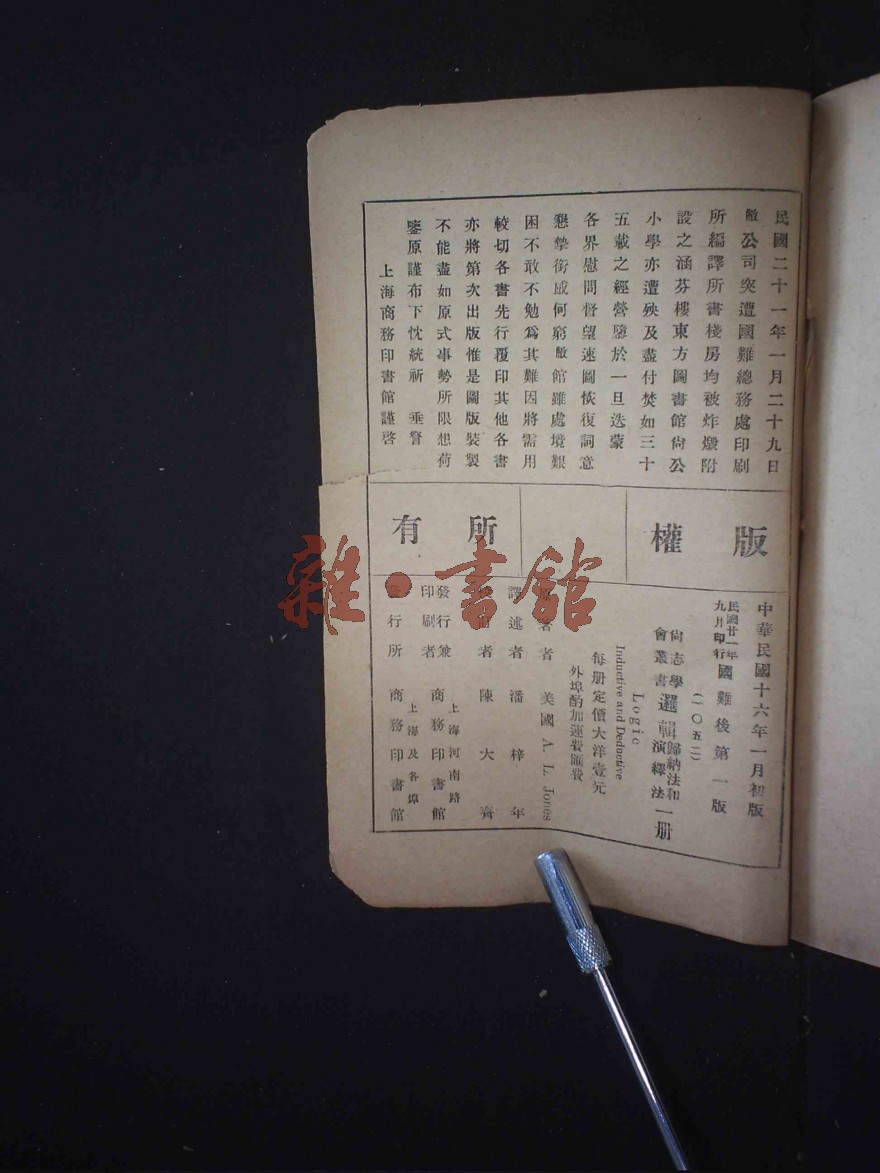 民國二十一年一月二十九日
敝公司突遭國難總務處印刷
所編譯所書棧房均被炸燬附
設之涵芬樓東方圖書館尙公
小學亦遭殃及盡付焚如三十
五載之經營隳於一旦迭蒙
各界慰問督望速圖恢復詞意
懇摯銜感何窮敝館雖處境艱
困不敢不勉爲其難因將需用
較切各書先行覆印其他各書
亦將第次出版惟是圖版裝製
不能盡如原式事勢所限想荷
鑒原謹布下忱統祈 垂詧
上海商務印書館謹啓
版權所有
中華民國十六年一月初版
民國廿一年九月印行國難後第一版
(一〇五二)
尙志學會叢書邏輯歸納法和演繹法一册
Logic
Inductive and Deductive
每册定價大洋壹元
外埠酌加運費匯費
者 美國 A. L. Jones
譯述者 潘梓年
者 陳大齊
發行兼印刷者 上海河南路商務印書館
發行所 上海及各埠商務印書館
雜·書館